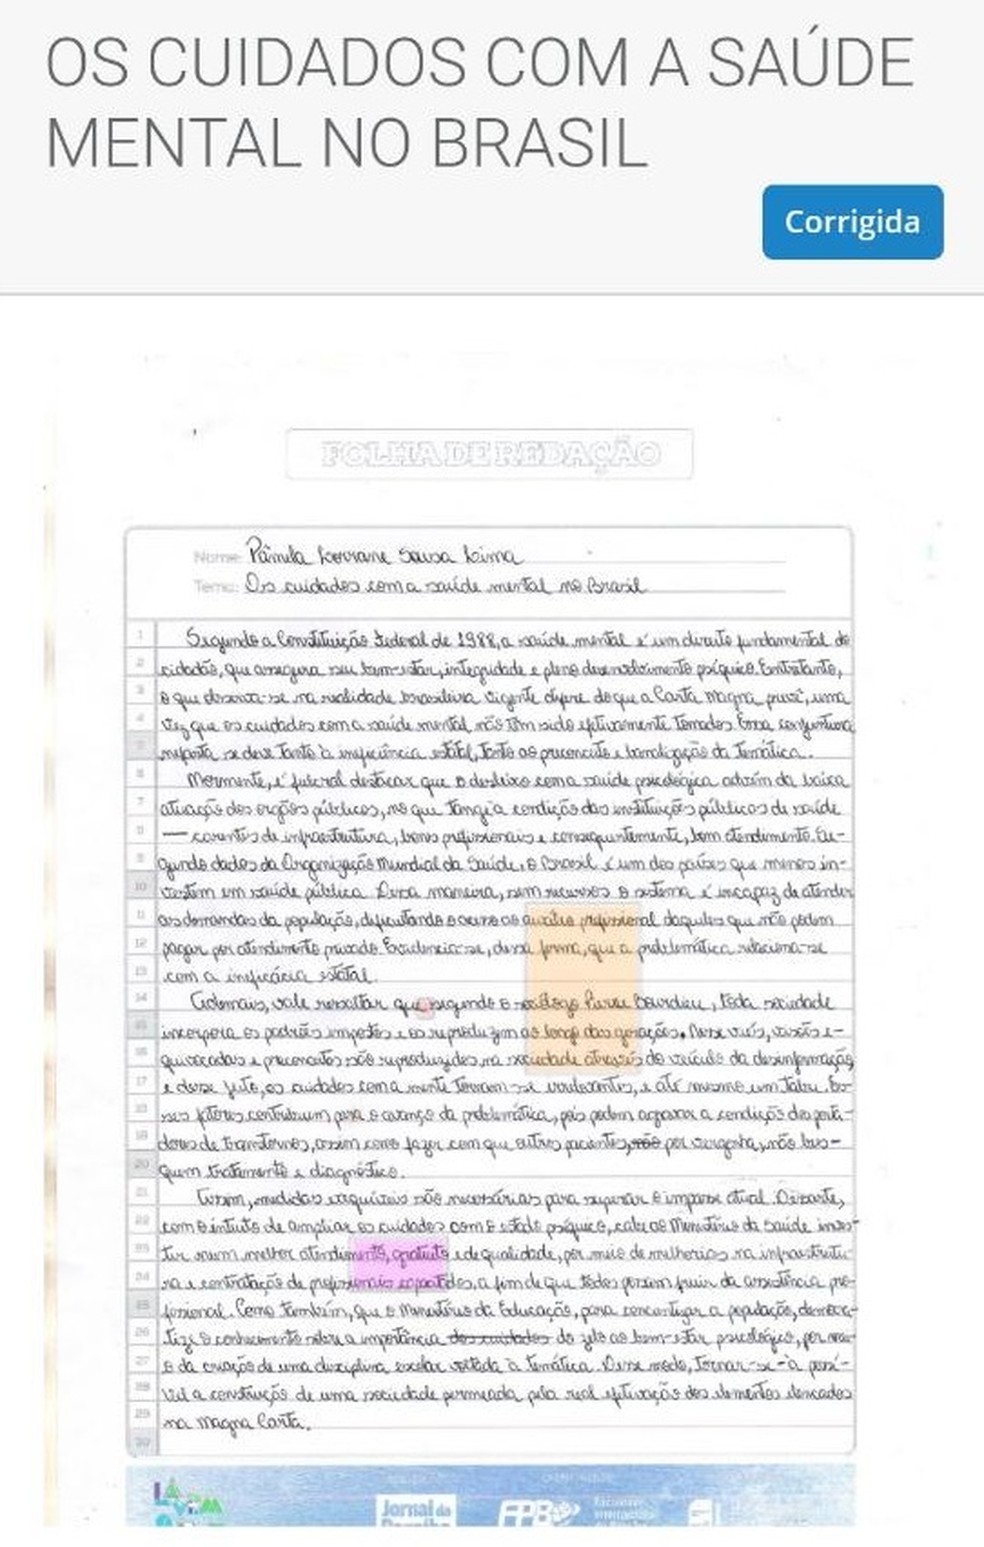 OS CUIDADOS COM A SAÚDE
MENTAL NO BRASIL
Corrigida
FOLHA DE REDAÇÃO
Nome: Pâmila Lorrane Sousa Lima
Tema: Os cuidados com a saúde mental no Brasil
1 Segundo a Constituição Federal de 1988, a saúde mental é um direito fundamental do
2 cidadão, que assegura seu bem-estar, integridade e pleno desenvolvimento psíquico. Entretanto,
3 o que observa-se na realidade brasileira vigente difere do que a Carta Magna prevê, uma
4 vez que os cuidados com a saúde mental não têm sido efetivamente tomados. Essa conjuntura
5 nefasta se deve tanto à ineficiência estatal, tanto ao preconceito e banalização da temática.
6 Mormente, é fulcral destacar que o desleixo com a saúde psicológica advém da baixa
7 atuação dos orgãos públicos, no que tange a condição das instituições públicas de saúde
8 — carentes de infraestrutura, bons profissionais e consequentemente, bom atendimento. Se-
9 gundo dados da Organização Mundial da Saúde, o Brasil é um dos países que menos in-
10 vestem em saúde pública. Dessa maneira, sem recursos o sistema é incapaz de atender
11 as demandas da população, dificultando o acesso ao auxílio profissional daqueles que não podem
12 pagar por atendimento privado. Evidencia-se, dessa forma, que a problemática relaciona-se
13 com a ineficácia estatal.
14 Ademais, vale ressaltar que segundo o sociólogo Pierre Bourdieu, toda sociedade
15 incorpora os padrões impostos e os reproduzem ao longo das gerações. Nesse viés, visões e-
16 quivocadas e preconceitos são reproduzidos na sociedade através do veículo da desinformação,
17 e desse jeito, os cuidados com a mente tornam-se irrelevantes, e até mesmo um tabu. Es-
18 ses fatores contribuem para o avanço da problemática, pois podem agravar a condição dos porta-
19 dores de transtornos, assim como fazer com que outros pacientes, não por vergonha, não bus-
20 quem tratamento e diagnóstico.
21 Assim, medidas exequíveis são necessárias para superar o impasse atual. Destarte,
22 com o intuito de ampliar os cuidados com o estado psíquico, cabe ao Ministério da Saúde inves-
23 tir num melhor atendimento, gratuito e de qualidade, por meio de melhorias na infraestrutu-
24 ra e contratação de profissionais capacitados, a fim de que todos possam fruir da assistência pro-
25 fissional. Como também, que o Ministério da Educação, para conscientizar a população, democra-
26 tize o conhecimento sobre a importância dos cuidados do zelo ao bem-estar psicológico, por mei-
27 o da criação de uma disciplina escolar voltada à temática. Desse modo, tornar-se-á possí-
28 vel a construção de uma sociedade permeada pela real efetivação dos elementos elencados
29 na Magna Carta.
30
Jornal da
Paraíba
FPB